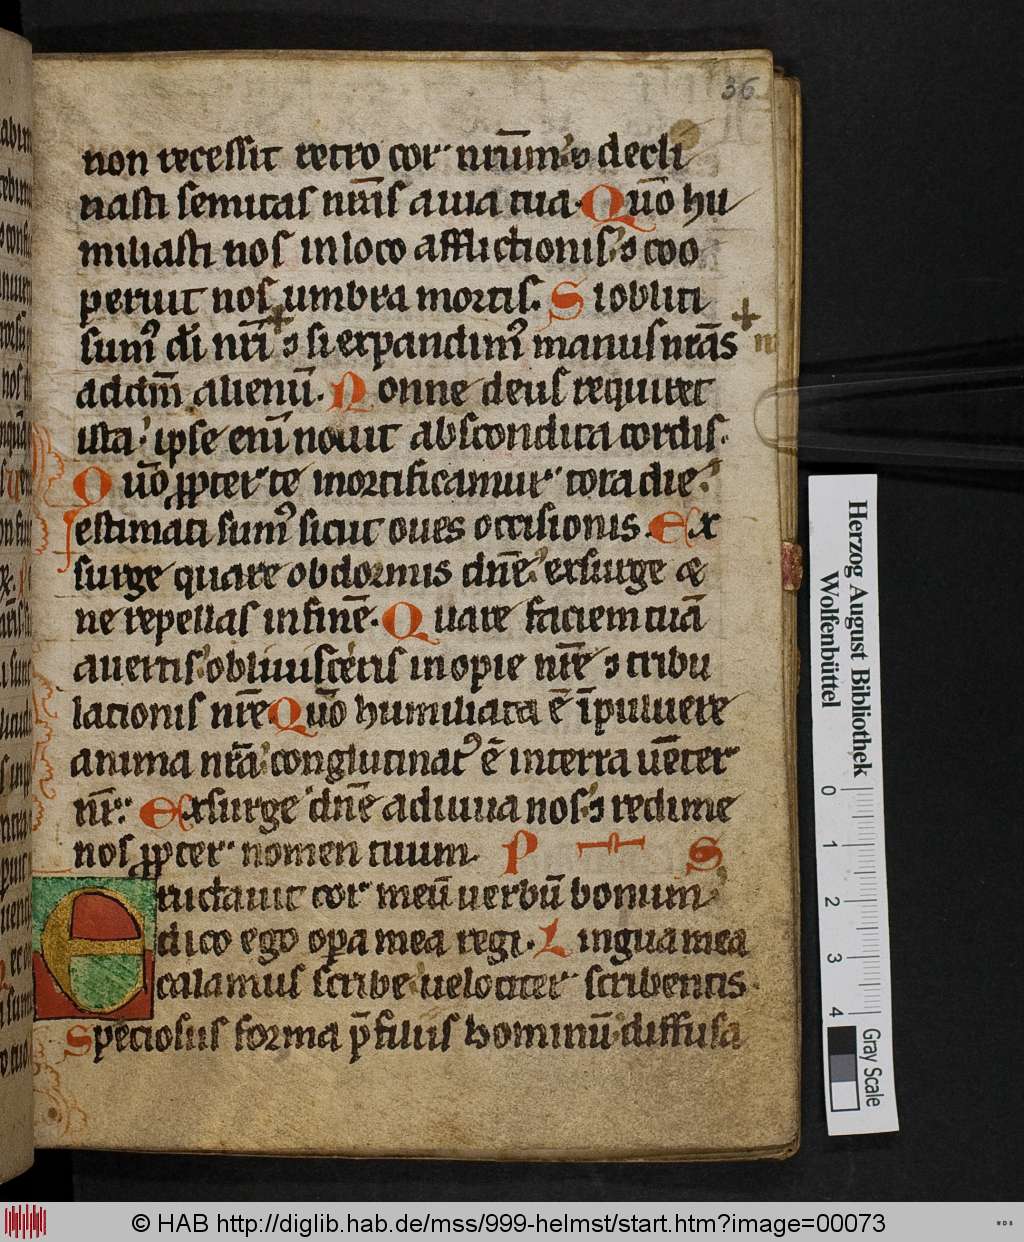 36
non recessit retro cor nrūm ⁊ decli
nasti semitas nrīs a uia tua. Quō hu
miliasti nos in loco afflictionis ⁊ coo
peruit nos umbra mortis. Si obliti
sumꝰ dī nrī ⁊ si expandimꝰ manus nrās
ad dm̄ alienū. Nonne deus requiret
ista ipse enī nouit abscondita cordis.
Quō ꝓpter te mortificamur tota die
estimati sumꝰ sicut oues occisionis. Ex
surge quare obdormis dn̄e exsurge ⁊
ne repellas in finē. Quare faciem tuā
auertis obliuisceris inopie nrē ⁊ tribu
lationis nrē Quō humiliata ē ī puluere
anima nrā conglutinatꝰ ē in terra uēter
nr̄. Exsurge dn̄e adiuua nos ⁊ redime
nos ꝓpter nomen tuum. P S
Eructauit cor meū uerbū bonum
dico ego opa mea regi. Lingua mea
calamus scribe uelociter scribentis
Speciosus forma p̄ filiis hominū diffusa
Herzog August Bibliothek
Wolfenbüttel
0 1 2 3 4
Gray Scale
© HAB http://diglib.hab.de/mss/999-helmst/start.htm?image=00073